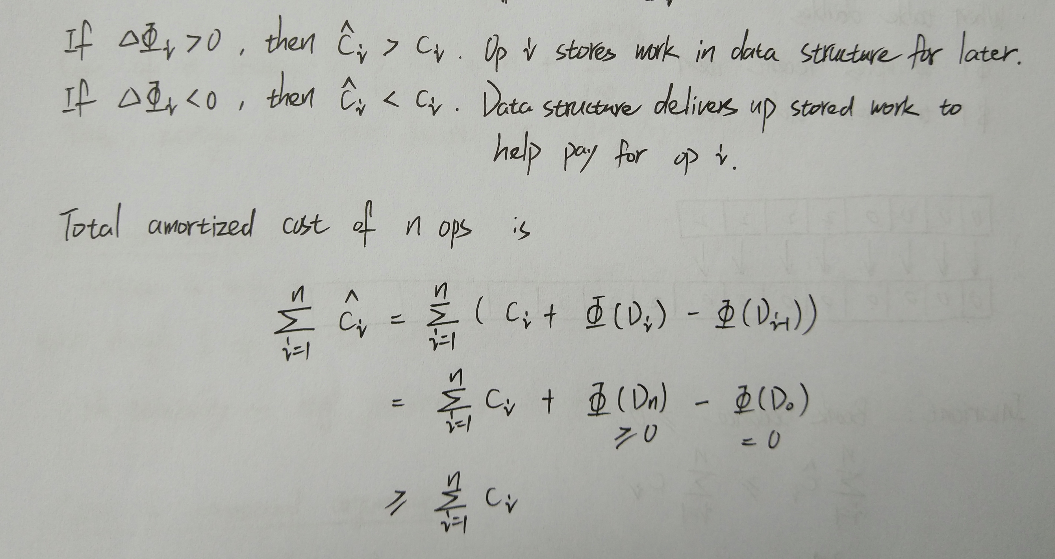 If ΔΦᵢ > 0, then ĉᵢ > cᵢ. Op i stores work in data structure for later.
If ΔΦᵢ < 0, then ĉᵢ < cᵢ. Data structure delivers up stored work to
help pay for op i.
Total amortized cost of n ops is
∑ᵢ₌₁ⁿ ĉᵢ = ∑ᵢ₌₁ⁿ (cᵢ + Φ(Dᵢ) - Φ(Dᵢ₋₁))
= ∑ᵢ₌₁ⁿ cᵢ + Φ(Dₙ) - Φ(D₀)
≥ 0 = 0
≥ ∑ᵢ₌₁ⁿ cᵢ